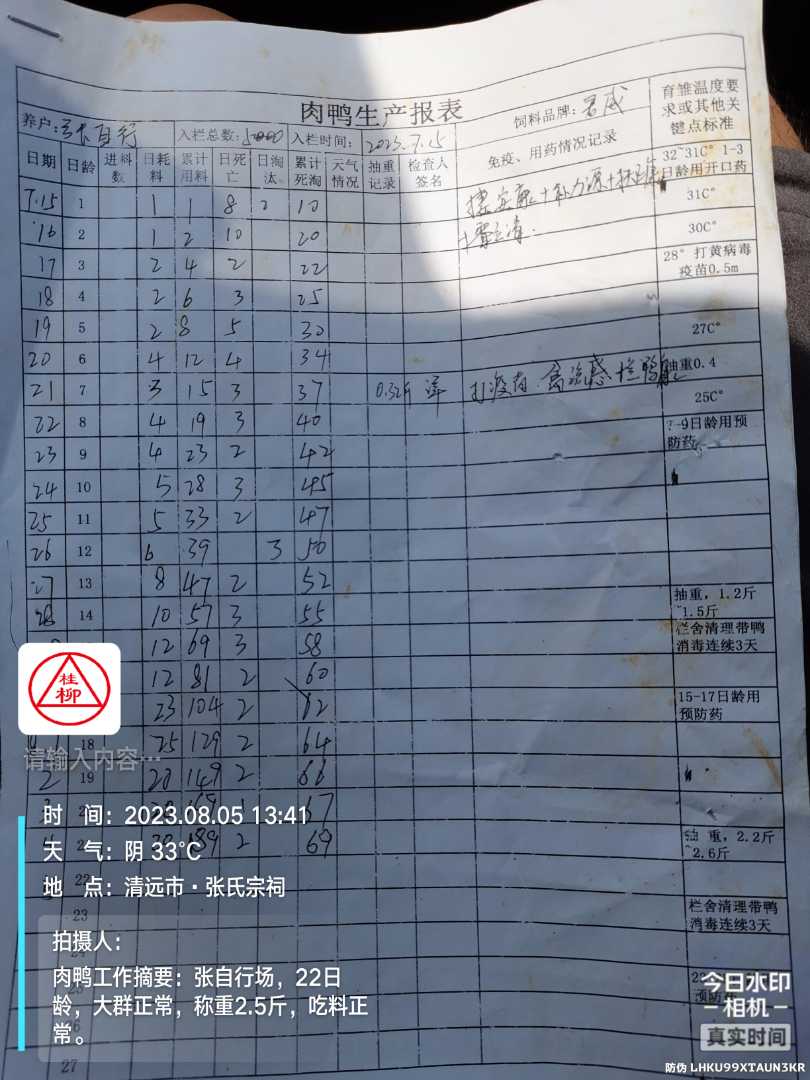 肉鸭生产报表
养户: 张自行 入栏总数: 5000 入栏时间: 2023.7.15 饲料品牌: 育雏温度要求或其他关键点标准
日期 日龄 进料数 日耗料 累计用料 日死亡 日淘汰 累计死淘 天气情况 抽重记录 检查人签名 免疫、用药情况记录 32~31C° 1-3日龄用开口药
7.15 1 1 1 8 2 10 31C°
16 2 1 2 10 20 30C°
17 3 2 4 2 22 28° 打黄病毒疫苗0.5m
18 4 2 6 3 25
19 5 2 8 5 30 27C°
20 6 4 12 4 34 抽重0.4
21 7 3 15 3 37 0.52斤 打疫苗 禽流感 25C°
22 8 4 19 3 40 7-9日龄用预防药
23 9 4 23 2 42
24 10 5 28 3 45
25 11 5 33 2 47
26 12 6 39 3 50
27 13 8 47 2 52 抽重, 1.2斤~1.5斤
28 14 10 57 3 55 栏舍清理带鸭消毒连续3天
12 69 3 58
12 81 2 60
23 104 2 62 15-17日龄用预防药
18 25 129 2 64
2 19 20 149 2 66
169 67
189 2 69 抽重, 2.2斤~2.6斤
22
23 栏舍清理带鸭消毒连续3天
预防药
27
桂柳
请输入内容…
时 间: 2023.08.05 13:41
天 气: 阴 33℃
地 点: 清远市·张氏宗祠
拍摄人:
肉鸭工作摘要: 张自行场, 22日
龄, 大群正常, 称重2.5斤, 吃料正
常。
今日水印
相机
真实时间
防伪 LHKU99XTAUN3KR